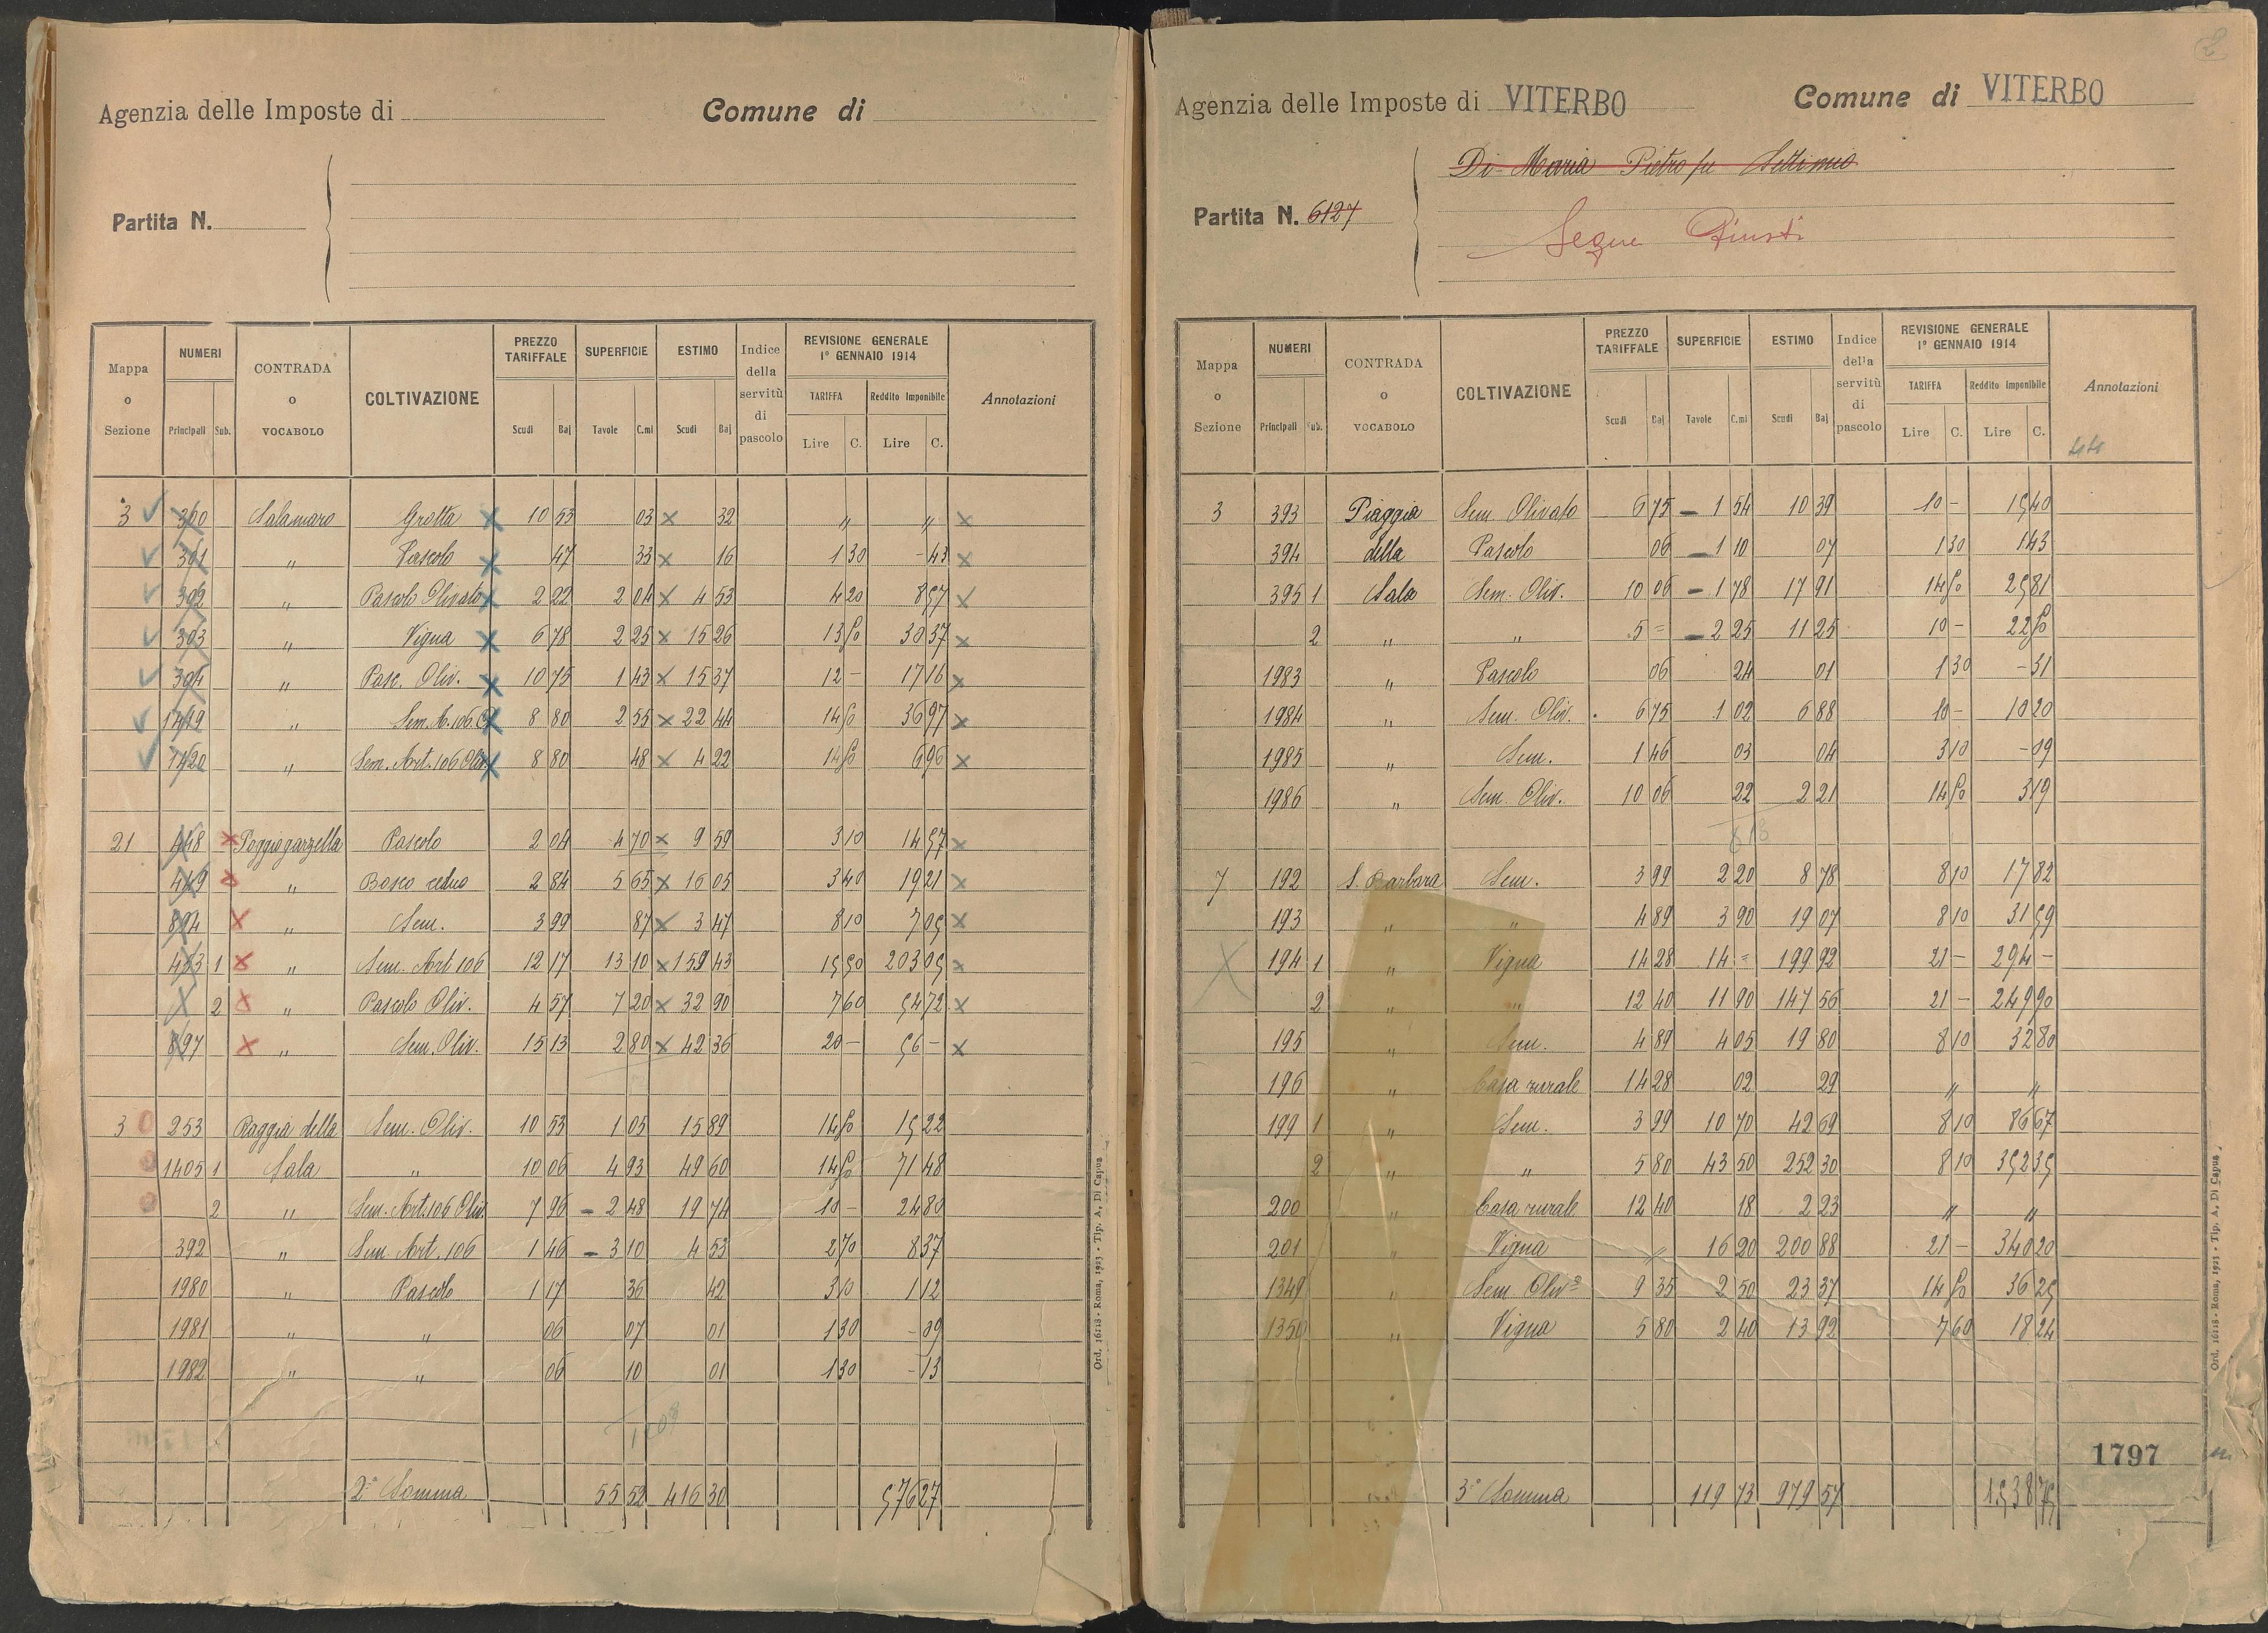 Agenzia delle Imposte di Comune di
Partita N.
Mappa o Sezione NUMERI Principali Sub. CONTRADA o VOCABOLO COLTIVAZIONE PREZZO TARIFFALE Scudi Baj SUPERFICIE Tavole C.mi ESTIMO Scudi Baj Indice della servitù di pascolo REVISIONE GENERALE 1° GENNAIO 1914 TARIFFA Lire C. Reddito Imponibile Lire C. Annotazioni
3 Salamaro Grotta 10 53 03 32 " "
" Pascolo 47 33 16 1 30 - 43
" Pascolo Olivato 2 22 2 04 4 53 4 20 8 57
" Vigna 6 78 2 25 15 26 13 50 30 37
" Pasc. Oliv. 10 75 1 43 15 37 12 - 17 16
1419 " 8 80 2 55 22 44 14 50 36 97
1420 " Sem. Art. 106 Oliv. 8 80 48 4 22 14 50 6 96
21 448 Poggiogarzella Pascolo 2 04 4 70 9 59 3 10 14 57
449 " Bosco ceduo 2 84 5 65 16 05 3 40 19 21
894 " Sem. 3 99 87 3 47 8 10 7 05
453 1 " Sem. Art 106 12 17 13 10 159 43 15 50 203 05
2 " Pascolo Oliv. 4 57 7 20 32 90 7 60 54 72
897 " Sem. Oliv. 15 13 2 80 42 36 20 - 56 -
3 253 Piaggia della Sem. Oliv. 10 53 1 05 15 89 14 50 15 22
1405 1 Sala " 10 06 4 93 49 60 14 50 71 48
2 " Sem. Art. 106 Oliv. 7 96 - 2 48 19 74 10 - 24 80
392 " Sem Art. 106 1 46 - 3 10 4 53 2 70 8 37
1980 " Pascolo 1 17 36 42 3 10 1 12
1981 " " 06 07 01 1 30 - 09
1982 " " 06 10 01 1 30 - 13
2ª Somma 55 52 416 30 576 27
Ord. 16118 - Roma, 1923 - Tip. A. Di Capua
Agenzia delle Imposte di VITERBO Comune di VITERBO
Di Maria Pietro fu Settimio
Partita N. 6127
Segue Giusti
Mappa o Sezione NUMERI Principali Sub. CONTRADA o VOCABOLO COLTIVAZIONE PREZZO TARIFFALE Scudi Baj SUPERFICIE Tavole C.mi ESTIMO Scudi Baj Indice della servitù di pascolo REVISIONE GENERALE 1° GENNAIO 1914 TARIFFA Lire C. Reddito Imponibile Lire C. Annotazioni
44
3 393 Piaggia Sem Olivato 6 75 - 1 54 10 39 10 - 15 40
394 della Pascolo 06 - 1 10 07 1 30 1 43
395 1 Sala Sem. Oliv. 10 06 - 1 78 17 91 14 50 25 81
2 " " 5 = - 2 25 11 25 10 - 22 50
1983 " Pascolo 06 24 01 1 30 - 31
1984 " Sem. Oliv. 6 75 1 02 6 88 10 - 10 20
1985 " Sem. 1 46 03 04 3 10 - 09
1986 " Sem. Oliv. 10 06 22 2 21 14 50 3 19
818
7 192 S. Barbara Sem. 3 99 2 20 8 78 8 10 17 82
193 " " 4 89 3 90 19 07 8 10 31 59
194 1 " Vigna 14 28 14 = 199 92 21 - 294 -
2 " " 12 40 11 90 147 56 21 - 249 90
195 " Sem. 4 89 4 05 19 80 8 10 32 80
196 " Casa rurale 14 28 02 29 " "
199 1 " Sem. 3 99 10 70 42 69 8 10 86 67
2 " " 5 80 43 50 252 30 8 10 352 35
200 " Casa rurale 12 40 18 2 23 " "
201 " Vigna " 16 20 200 88 21 - 340 20
1349 " Sem. Oliv° 9 35 2 50 23 37 14 50 36 25
1350 " Vigna 5 80 2 40 13 92 7 60 18 24
1797
3ª Somma 119 73 979 57 1538 75
Ord. 16118 - Roma, 1923 - Tip. A. Di Capua